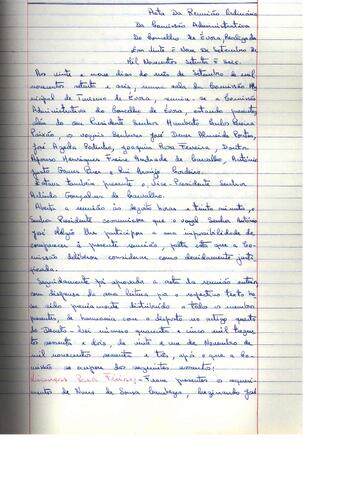 Acta Da Reunião Ordinária
Da Comissão Administrativa
Do Concelho de Évora, Realizada
Em Vinte e Nove De Setembro de
Mil Novecentos Setenta e Seis.
Aos vinte e nove dias do mês de Setembro de mil
novecentos setenta e seis, numa sala da Comissão Mu-
nicipal de Turismo de Évora, reuniu-se a Comissão
Administrativa do Concelho de Évora, estando presentes,
além do seu Presidente Senhor Humberto Carlos Pereira
Paixão, os vogais Senhores José Almeida
José Joaquim Rosa Ferreira, Doutor
Afonso Henriques Freire Andrade de Carvalho, António
Gomes e Rui Araújo Cordeiro.
Estava também presente o Vice-Presidente Senhor
Gonçalves de Carvalho.
Aberta a reunião às horas e trinta minutos, o
Senhor Presidente comunicou que o vogal Senhor António
José lhe participou a sua impossibilidade de
comparecer à presente reunião, falta esta que a Co-
missão deliberou considerar como devidamente justi-
ficada.
Seguidamente foi aprovada a acta da reunião anterior
com dispensa da sua leitura por o respectivo texto ha-
ver sido previamente distribuído a todos os membros
presentes, de harmonia com o disposto no artigo quarto
do Decreto-Lei número quarenta e cinco mil trezen-
tos sessenta e dois, de vinte e um de Novembro de
mil novecentos sessenta e três, após o que a Co-
missão se ocupou dos seguintes assuntos:
Licenças Para Obras:- Foram presentes os requeri-
mentos de Nuno de Sousa José